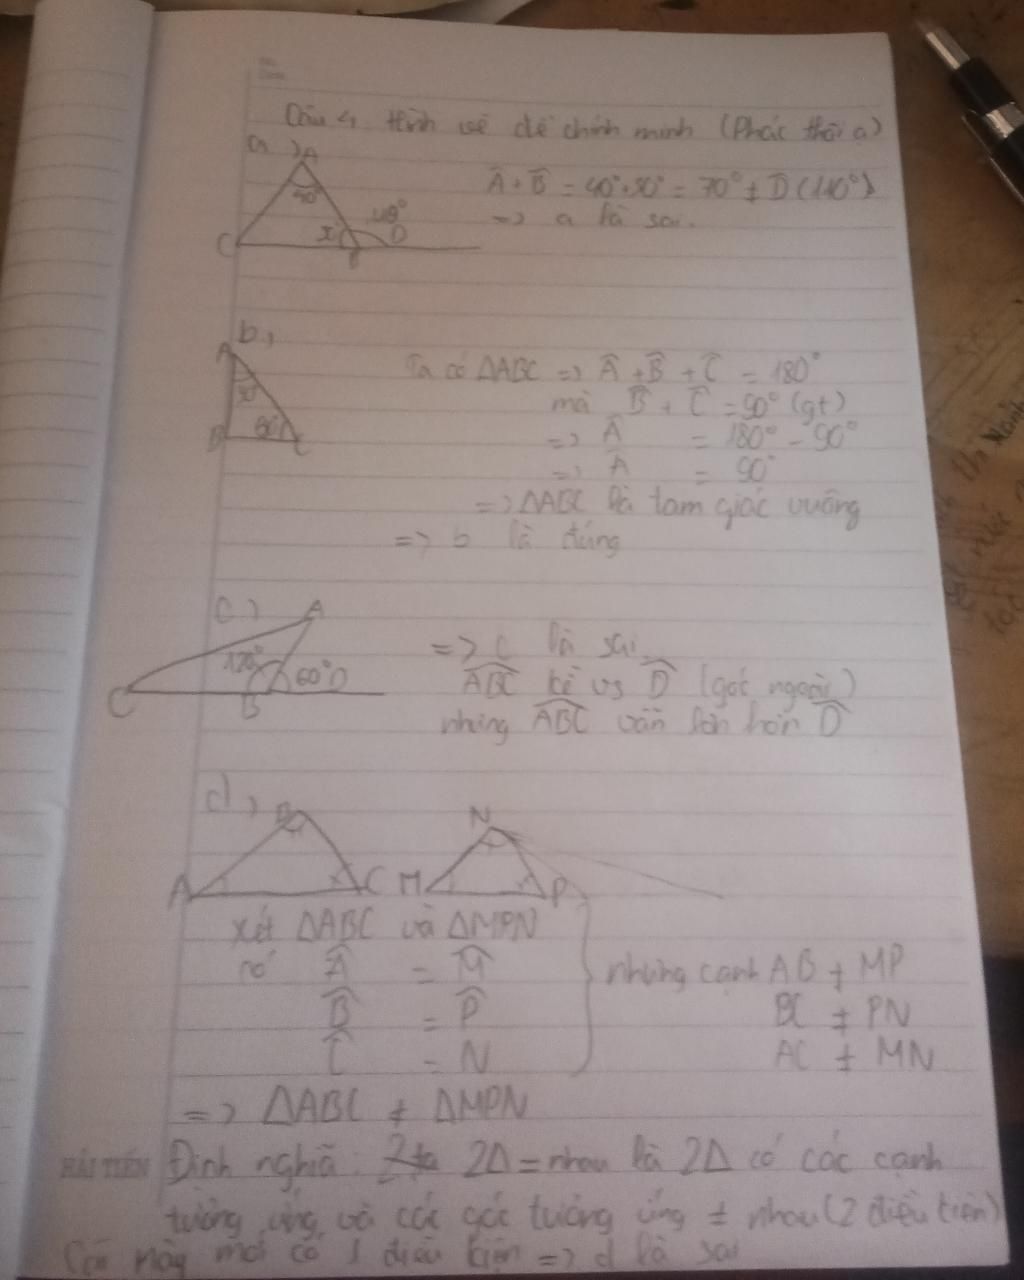 Câu 4 Hình vẽ để chính minh (Phác thôi ạ)
a,
A
40°
x
110°
C
D
Â + B̂ = 40° + 30° = 70° ≠ D̂ (110°)
=> a là sai.
b,
A
30°
B
60°
C
Ta có ΔABC => Â + B̂ + Ĉ = 180°
mà B̂ + Ĉ = 90° (gt)
=> Â = 180° - 90°
=> Â = 90°
=> ΔABC là tam giác vuông
=> b là đúng
c,
A
120°
60°
D
C
B
=> C là sai.
ABC kề vs D̂ (góc ngoài)
nhưng ABC vẫn lớn hơn D̂
d,
B
N
A
C
M
P
xét ΔABC và ΔMPN
có Â = M̂
B̂ = P̂
Ĉ = N
nhưng cạnh AB ≠ MP
BC ≠ PN
AC ≠ MN
=> ΔABC ≠ ΔMPN
HẢI TIẾN
Định nghĩa: 2Δ = nhau là 2Δ có các cạnh
tương ứng và các góc tương ứng = nhau (2 điều kiện)
Cái này mới có 1 điều kiện => d là sai